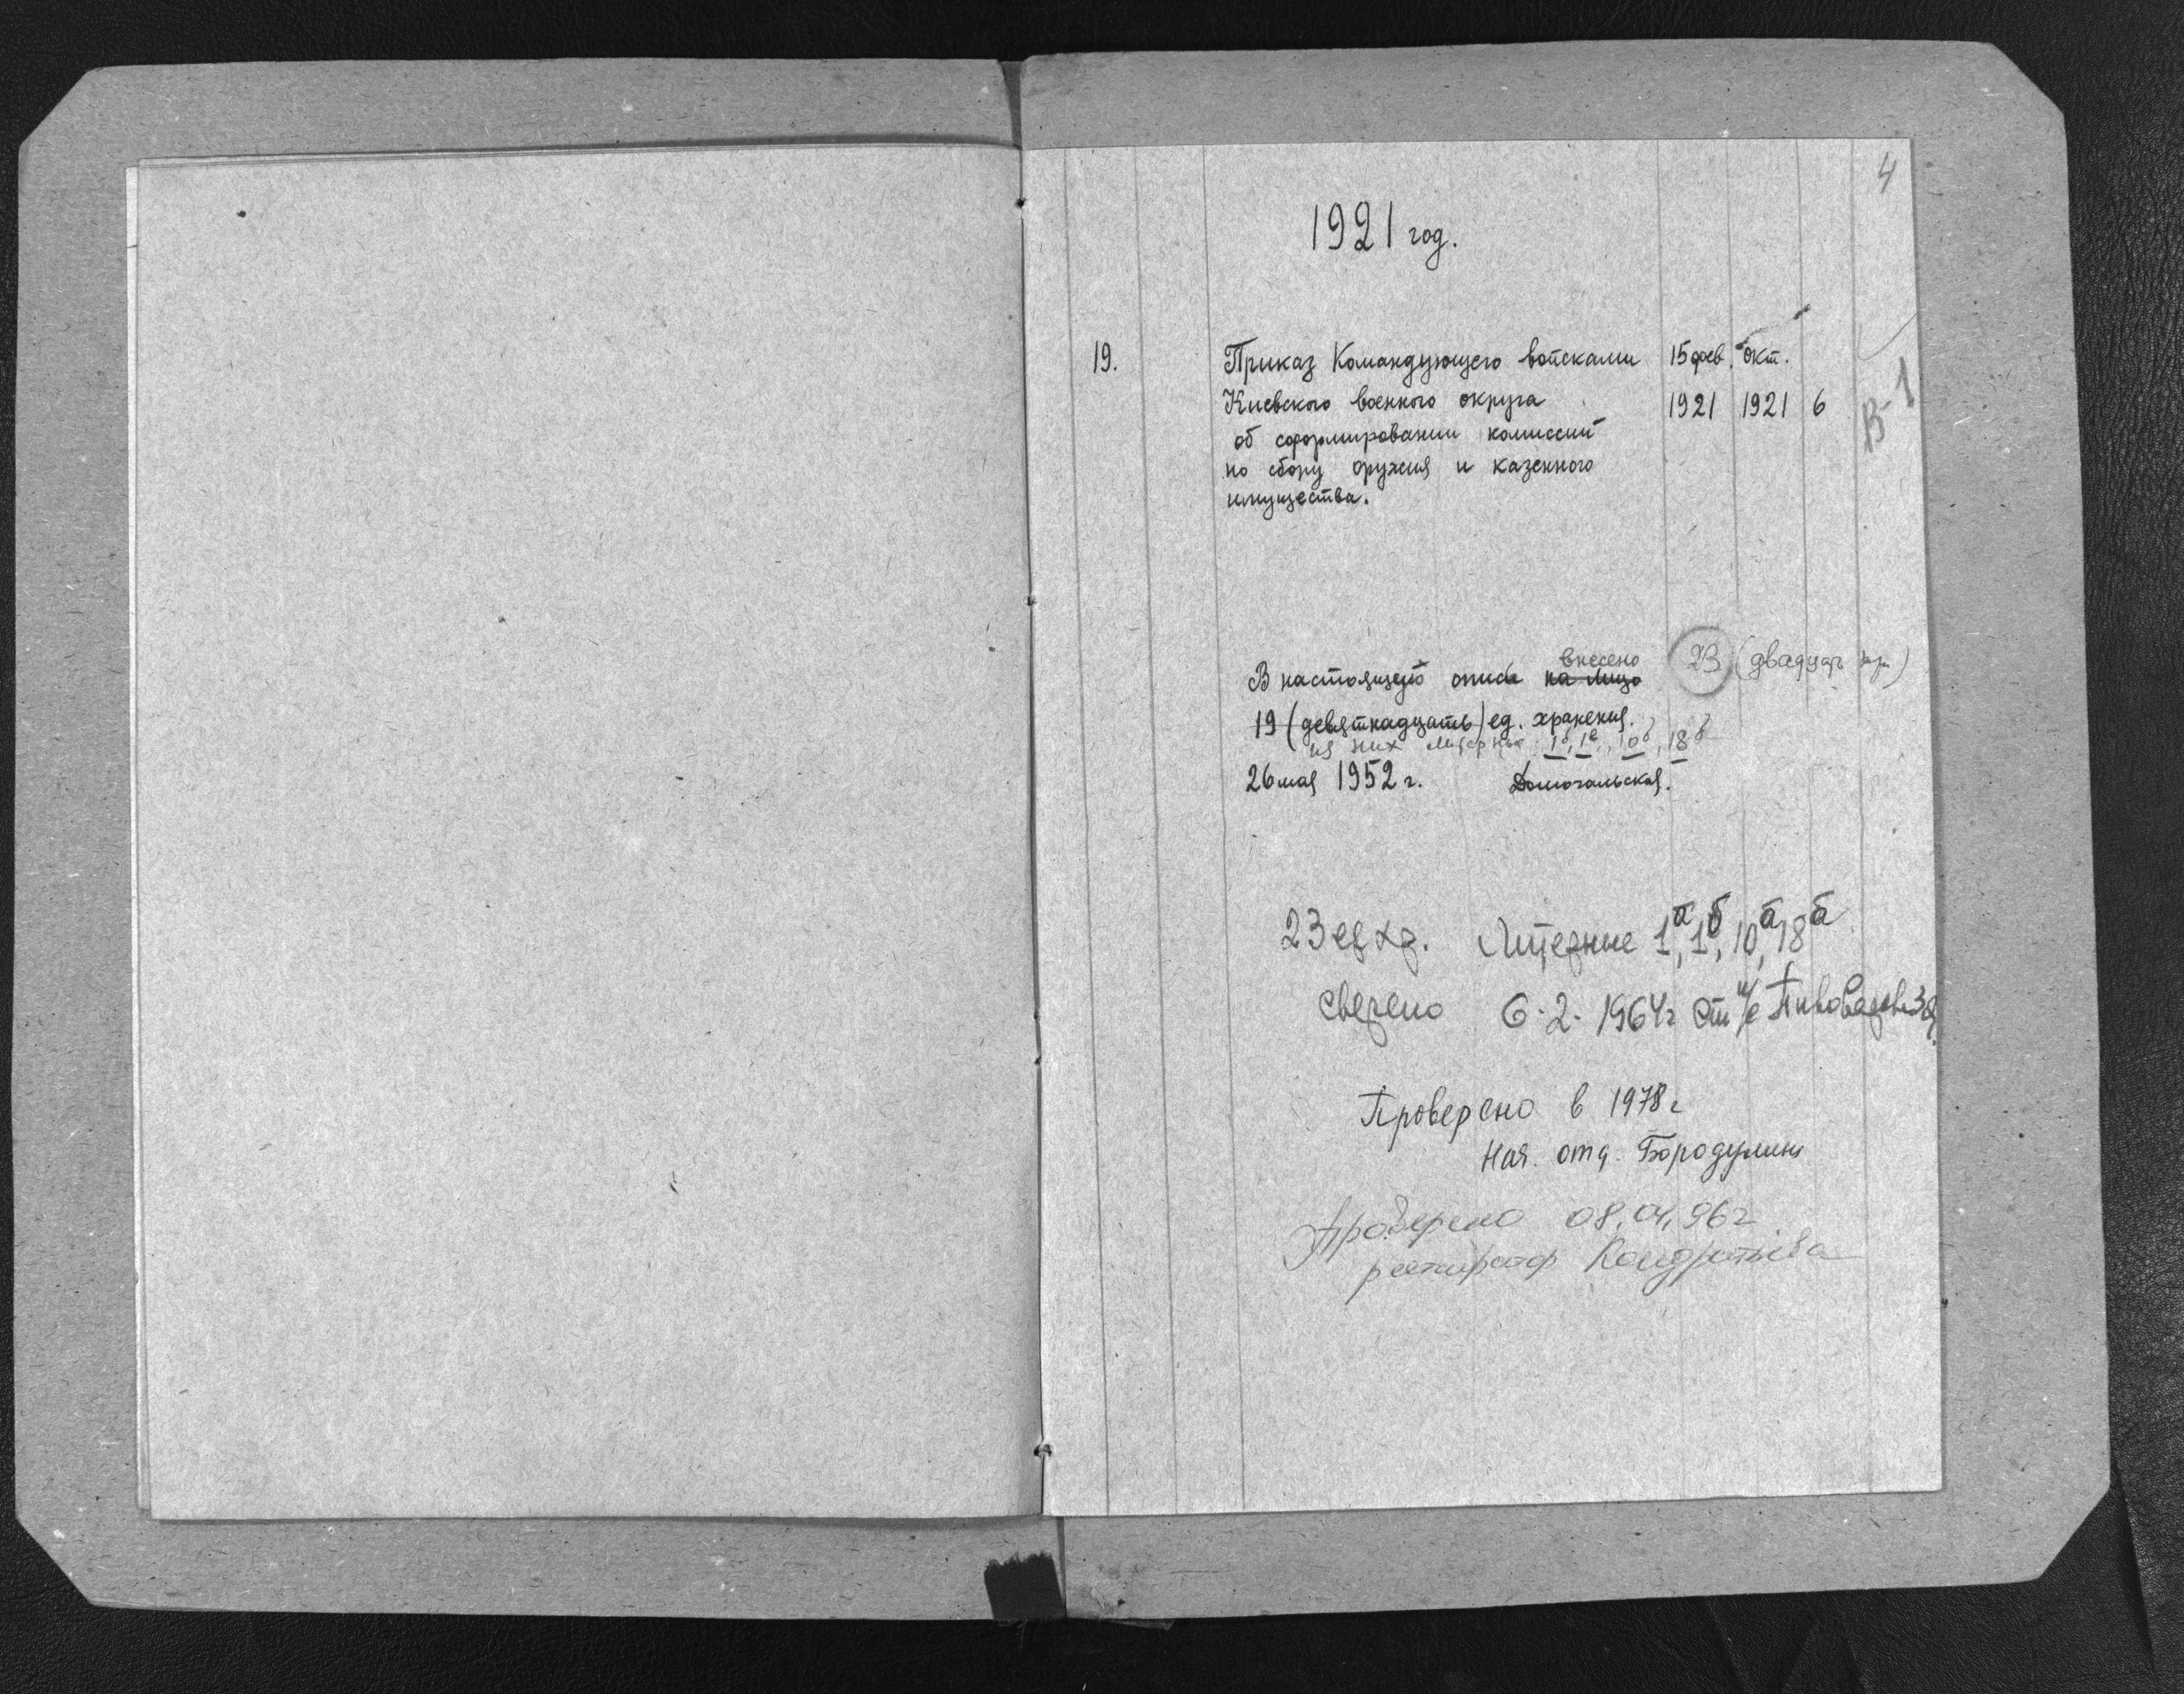 4
1921 год.
19. Приказ Командующего войсками 15 фев. окт.
Киевского военного округа 1921 1921 6
В-1
об сформировании комиссий
по сбору оружия и казенного
имущества.
внесено 23 (двадцать три)
В настоящую описа на лицо
19 (девятнадцать) ед. хранения.
из них литерные
26 мая 1952 г.
23 ед хр. Литерные 1а, 1б, 10а, 18а
Сверено 6.2.1964г Ст н/с
Проверено в 1978г
Нач. отд. Бородулин
Проверено 08.04.96г
Кондратьева